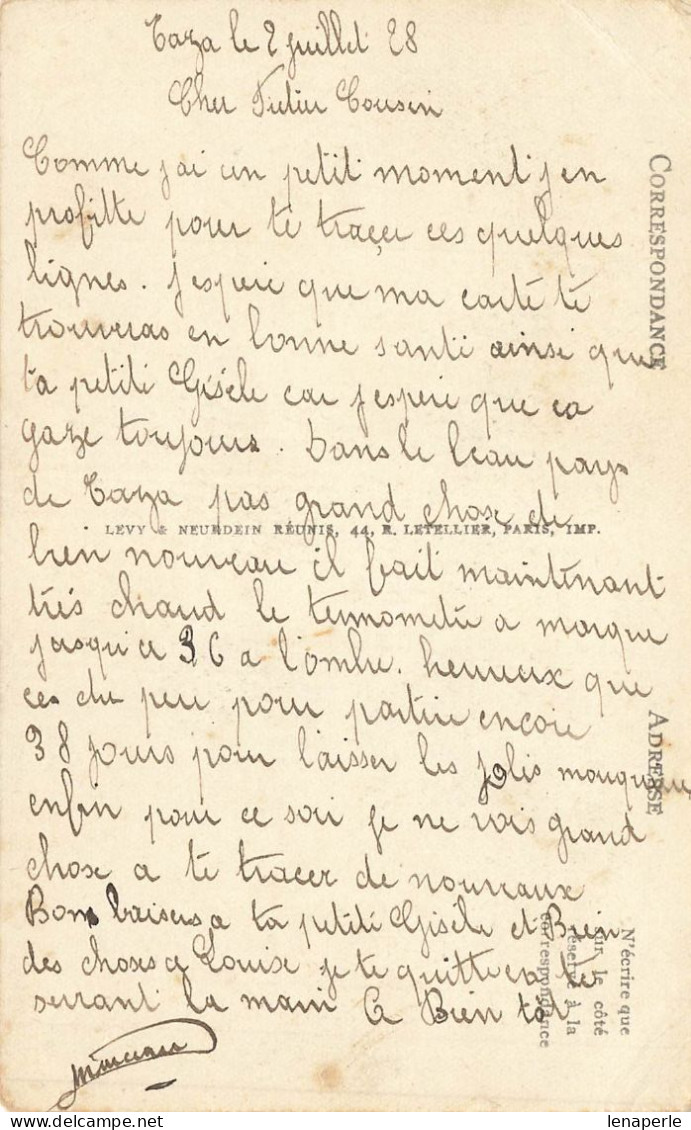 Taza le 2 juillet 28
Cher Cousin
Comme jai un petit moment jen
profitte pour te traçer ces quelques
lignes. Jespere que ma carte te
trouveras en bonne santé ainsi que
ta petite Gisèle car jespere que ca
gaze toujours. Dans le beau pays
de Taza pas grand chose de
LEVY & NEURDEIN RÉUNIS, 44, R. LETELLIER, PARIS, IMP.
bien nouveau il fait maintenant
très chaud le termometre a marque
jusqu'a 36 a l'ombre. heureux que
ces du peu pour partire encore
38 jours pour laisser les jolis
enfin pour ce soir je ne vois grand
chose a te tracer de nouveaux
Bons baisers a ta petite Gisèle et Bien
des choses a Louise je te quitte en te
serrant la main A Bien tot
CORRESPONDANCE
ADRESSE
N'écrire que
sur le côté
réservé à la
correspondance
lenaperle